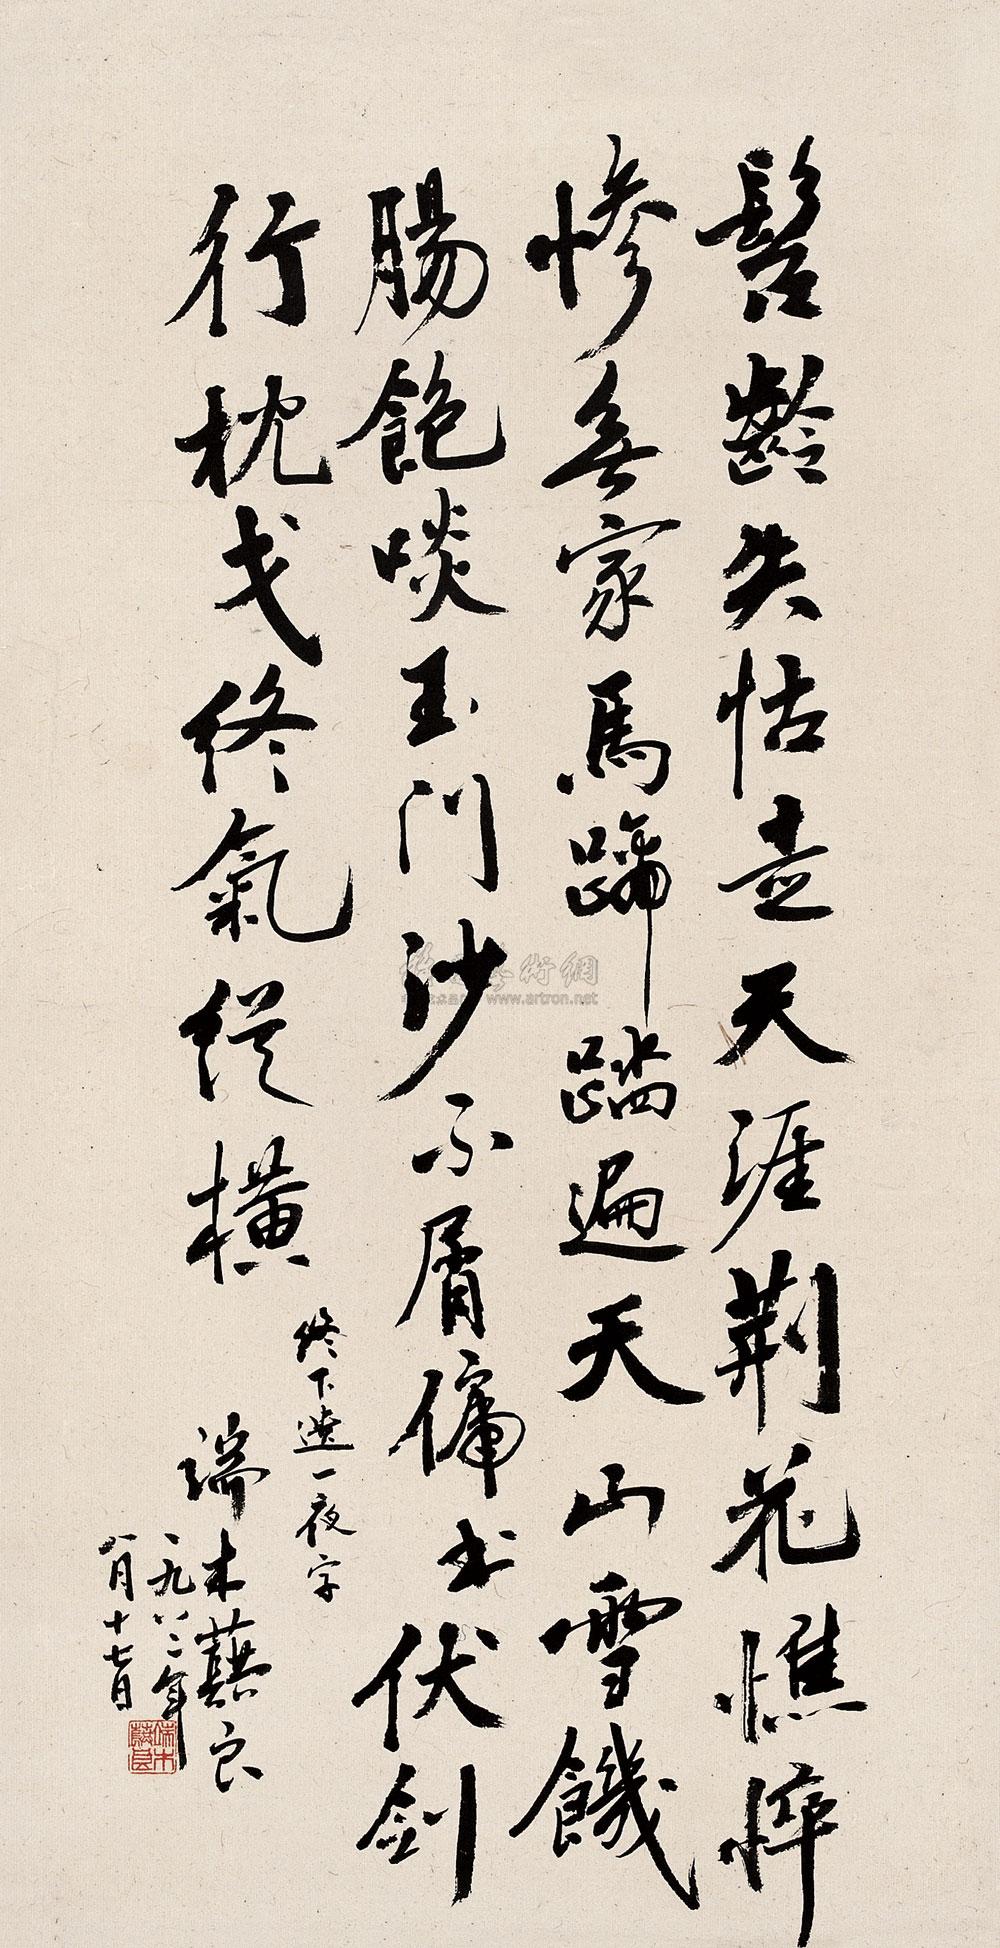 髫齡失怙走天涯荆花憔悴
慘無家馬蹄踏遍天山雪饑
腸飽啖玉门沙不屑傭书伏剑
行枕戈终氣纵橫
终下遗一夜字
端木蕻良
一九八二年
八月十七日
端木蕻良
www.artron.net